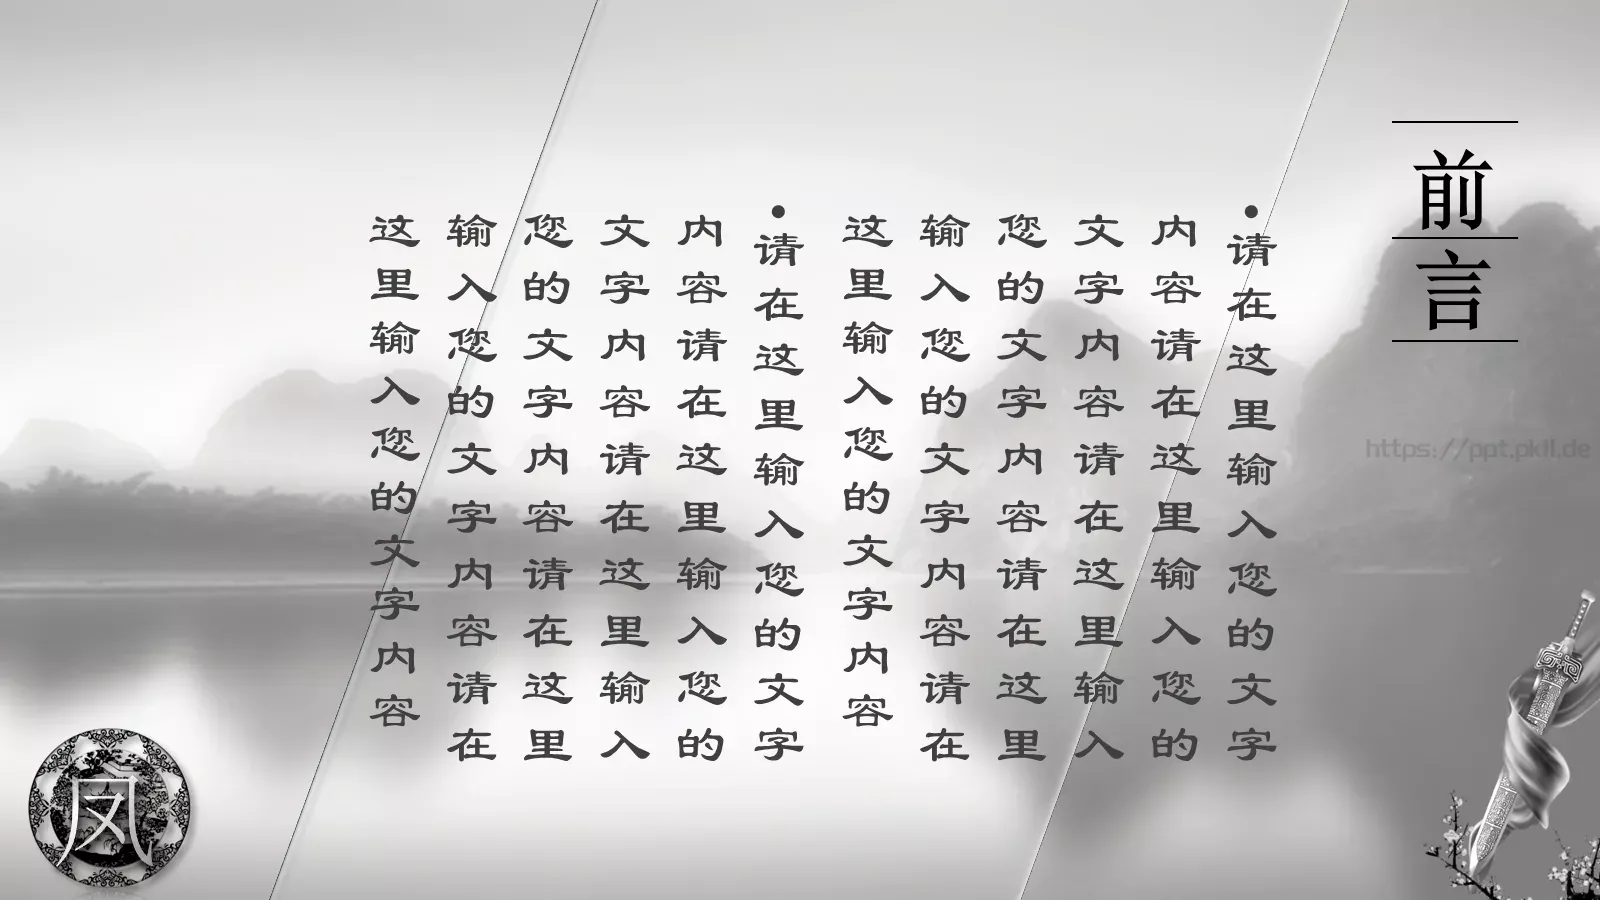 前言
•请在这里输入您的文字
内容请在这里输入您的
文字内容请在这里输入
您的文字内容请在这里
输入您的文字内容请在
这里输入您的文字内容
•请在这里输入您的文字
内容请在这里输入您的
文字内容请在这里输入
您的文字内容请在这里
输入您的文字内容请在
这里输入您的文字内容
凤